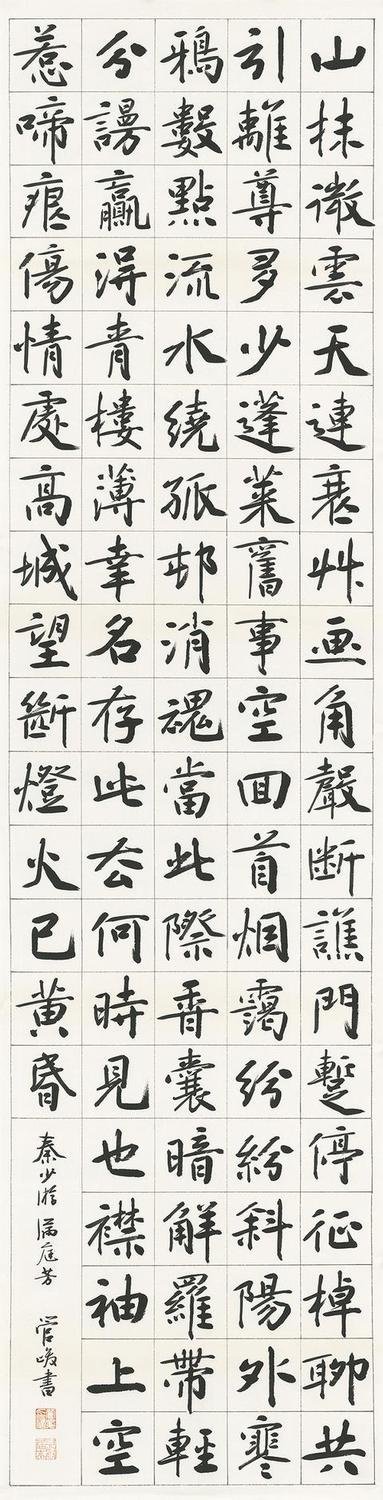 山抹微雲天連衰艸画角聲断譙門蹔停征棹聊共
引離尊多少蓬萊舊事空囬首烟靄紛紛斜陽外寒
鴉數點流水繞孤邨消魂當此際香囊暗解羅帶輕
分謾贏得青樓薄幸名存此去何時見也襟袖上空
惹啼痕傷情處高城望斷燈火已黃昏
秦少游滿庭芳 管峻書